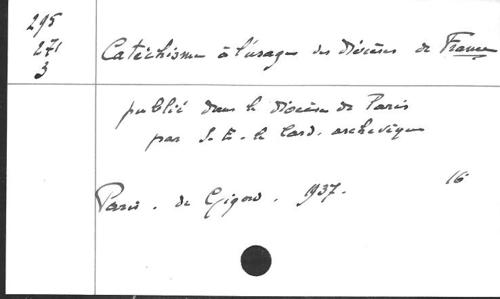 295
271
3
Catéchisme à l'usage des diocèses de France
publié dans le diocèse de Paris
par S. E. le Card. archevêque
Paris. de Gigord. 1937. 16